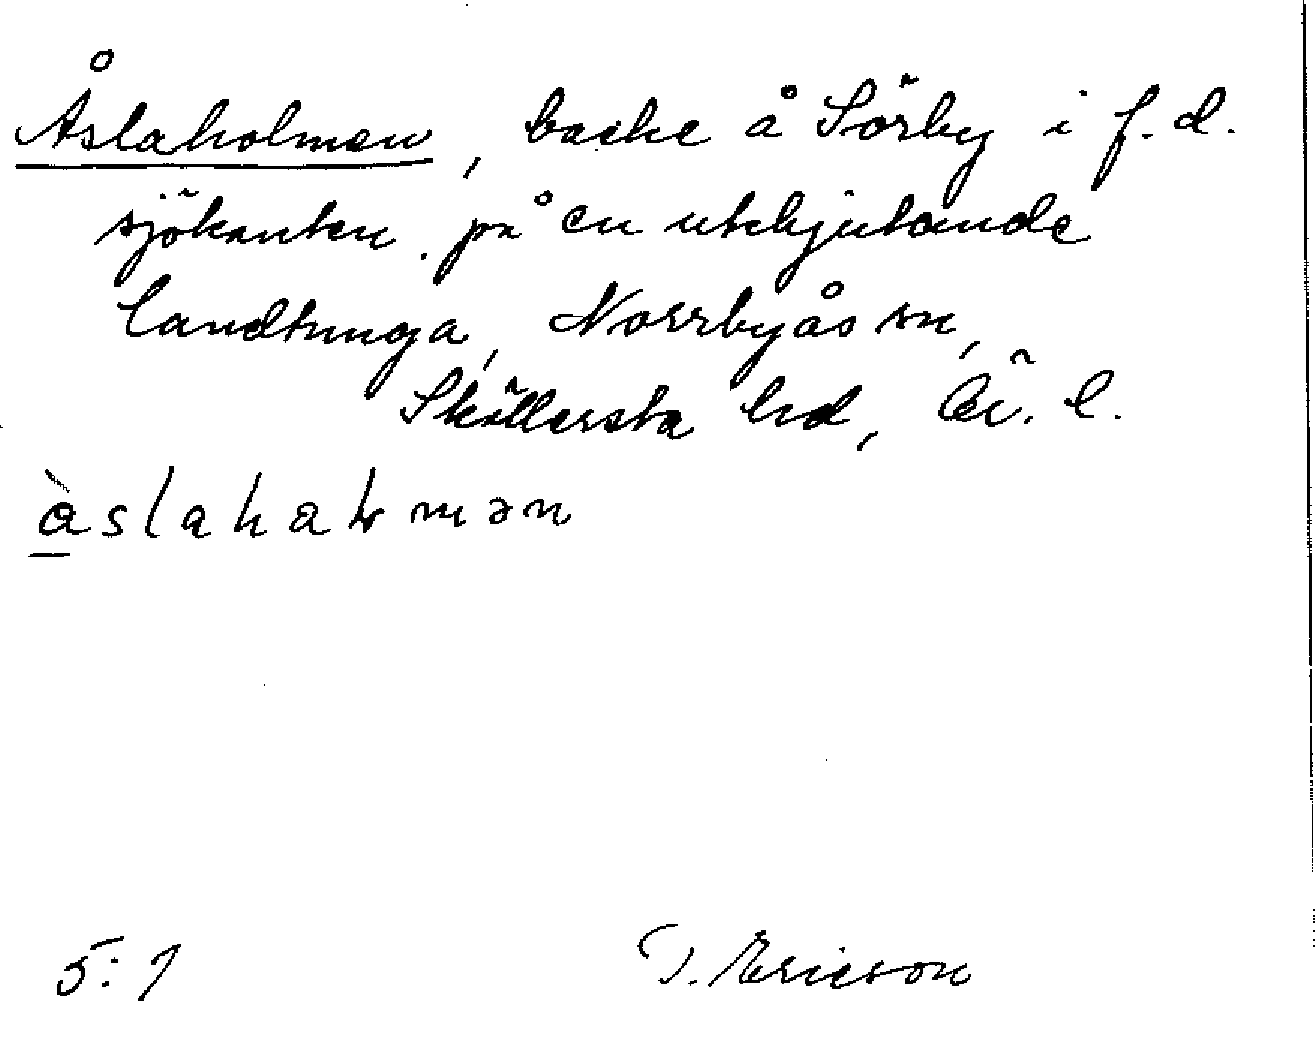 Åslaholmen, backe å Sörby i f.d.
sjökanten på en utskjutande
landtunga, Norrbyås sn,
Sköllersta hd, Ö. l.
àslahaɫmən
5:1
T. Ericson